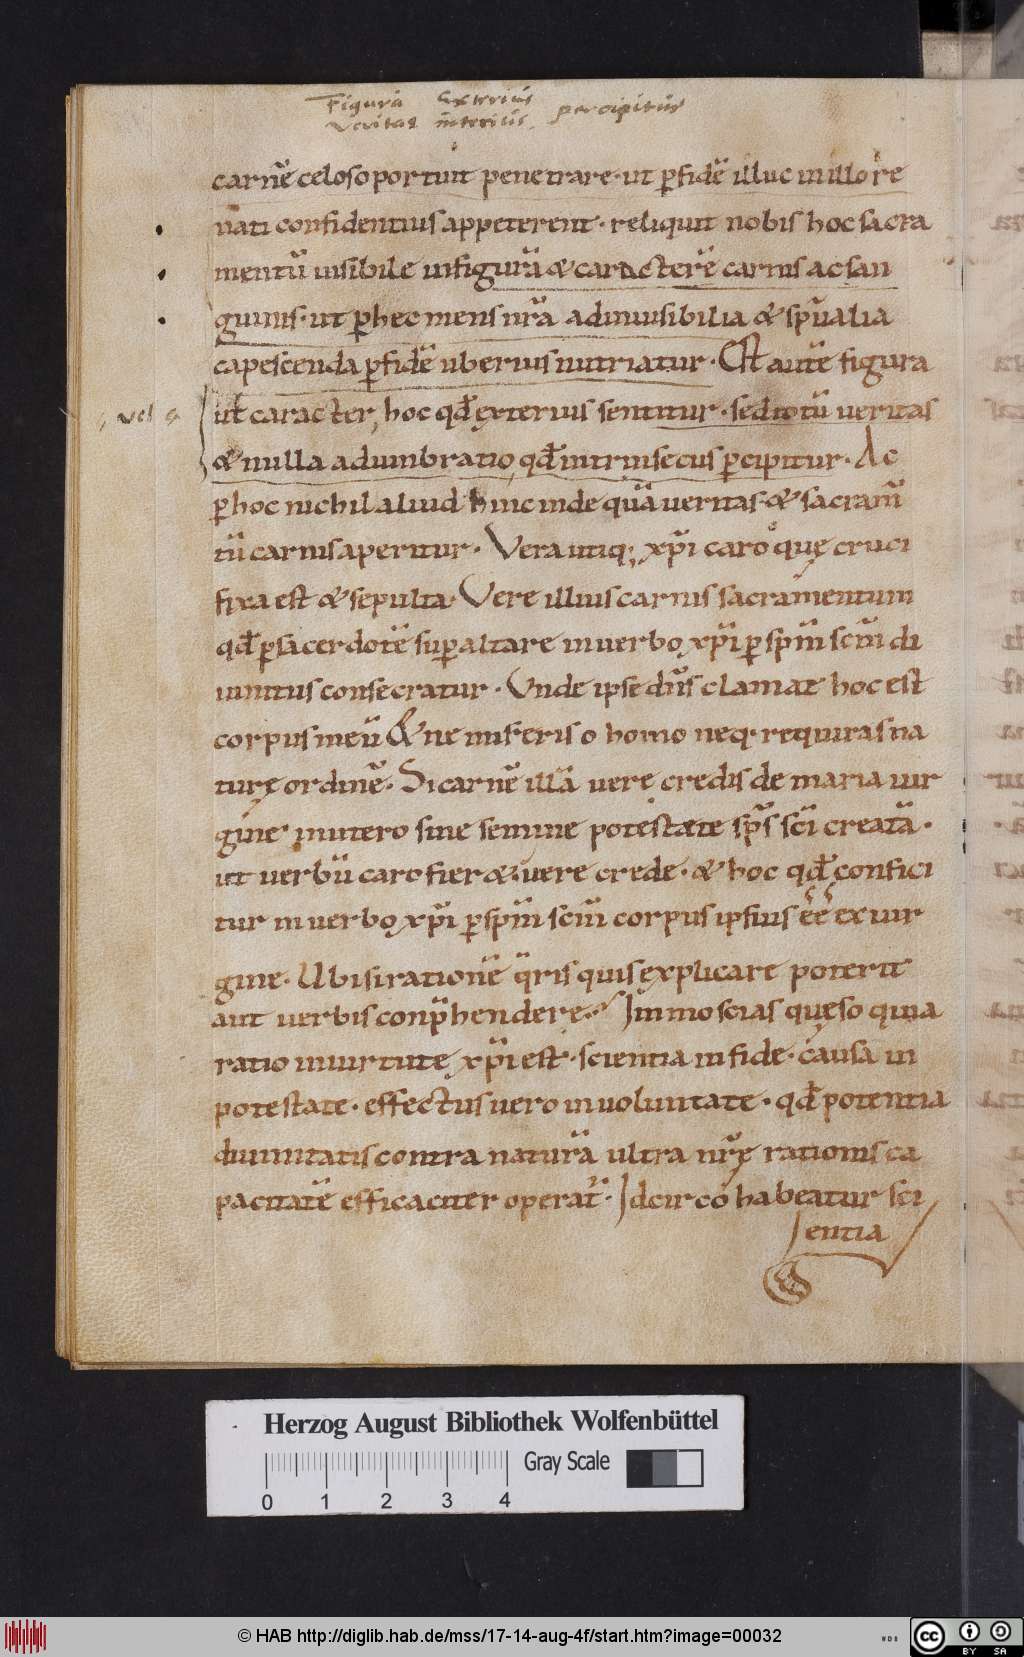 Figura exterius percipitur
Veritas interius
carnē celos oportuit penetrare · ut ꝑ fidē illuc in illo re
nati confidentius appeterent · reliquit nobis hoc sacra
mentū uisibile in figurā & caracterē carnis ac san
guinis · ut ꝑ hec mens nr̄a ad inuisibilia & sp̄ualia
capescenda ꝑ fidē uberius nutriatur · Est autē figura
vel
ut̄ caracter, hoc qd̄ exterius sentitur · sed totū ueritas
& nulla adumbratio qd̄ intrinsecus ꝑcipitur · Ac
ꝑ hoc nichil aliud hinc inde quā ueritas & sacram̄
tū carnis aperitur · Vera utiq; xp̄i caro quę cruci
fixa est & sepulta · Vere illius carnis sacramentum
qd̄ ꝑ sacerdotē suꝑ altare in uerbo xp̄i ꝑ sp̄m sc̄m di
uinitus consecratur · Vnde ipse dn̄s clamat hoc est
corpus meū & ne mireris o homo neq· requiras na
turę ordinē · Si carnē illā uere credis de maria uir
gine in utero sine semine potestate sp̄s sc̄i creatā ·
ut uerbū caro fier& · uere crede · & hoc qd̄ confici
tur in uerbo xp̄i ꝑ sp̄m sc̄m corpus ipsius ēē ex uir
gine · Ubi si rationē q̄ris quis explicare poterit
aut uerbis conp̄hendere · Immo scias queso quia
ratio in uirtute xp̄i est · scientia in fide · causa in
potestate · effectus uero in uoluntate · qd̄ potentia
diuinitatis contra naturā ultra nr̄ę rationis ca
pacitatē efficaciter operat̄ · Idcirco habeatur sci
entia
Herzog August Bibliothek Wolfenbüttel
Gray Scale
0 1 2 3 4
© HAB http://diglib.hab.de/mss/17-14-aug-4f/start.htm?image=00032
WDB
cc BY SA